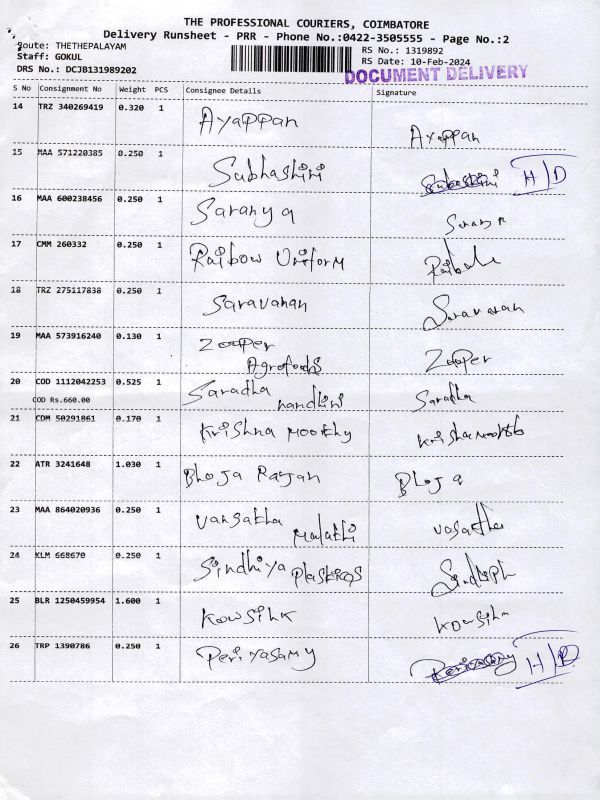 THE PROFESSIONAL COURIERS, COIMBATORE
Delivery Runsheet - PRR - Phone No.:0422-3505555 - Page No.:2
Route: THETHEPALAYAM
Staff: GOKUL
DRS No.: DCJB131989202
RS No.: 1319892
RS Date: 10-Feb-2024
DOCUMENT DELIVERY
S No Consignment No Weight PCS Consignee Details Signature
14 TRZ 340269419 0.320 1 Ayappan Ayappan
15 MAA 571220385 0.250 1 Subhashini Subashini H/D
16 MAA 600238456 0.250 1 Saranya
17 CMM 260332 0.250 1 Raibow Uniform
18 TRZ 275117838 0.250 1 Saravanan Saravanan
19 MAA 573916240 0.130 1 Zooper Zooper
Agrofoods
20 COD 1112042253 0.525 1 Saradha Saradha
COD Rs.660.00 nandhini
21 CDM 50291861 0.170 1 Krishna Moorthy
22 ATR 3241648 1.030 1 Bhoja Rajan Bhoja
23 MAA 864020936 0.250 1 Vansatha
Malathi
24 KLM 668670 0.250 1 Sindhiya Plastics
25 BLR 1250459954 1.600 1 Kowsihk
26 TRP 1390786 0.250 1 Periyasamy Periyasamy H/D